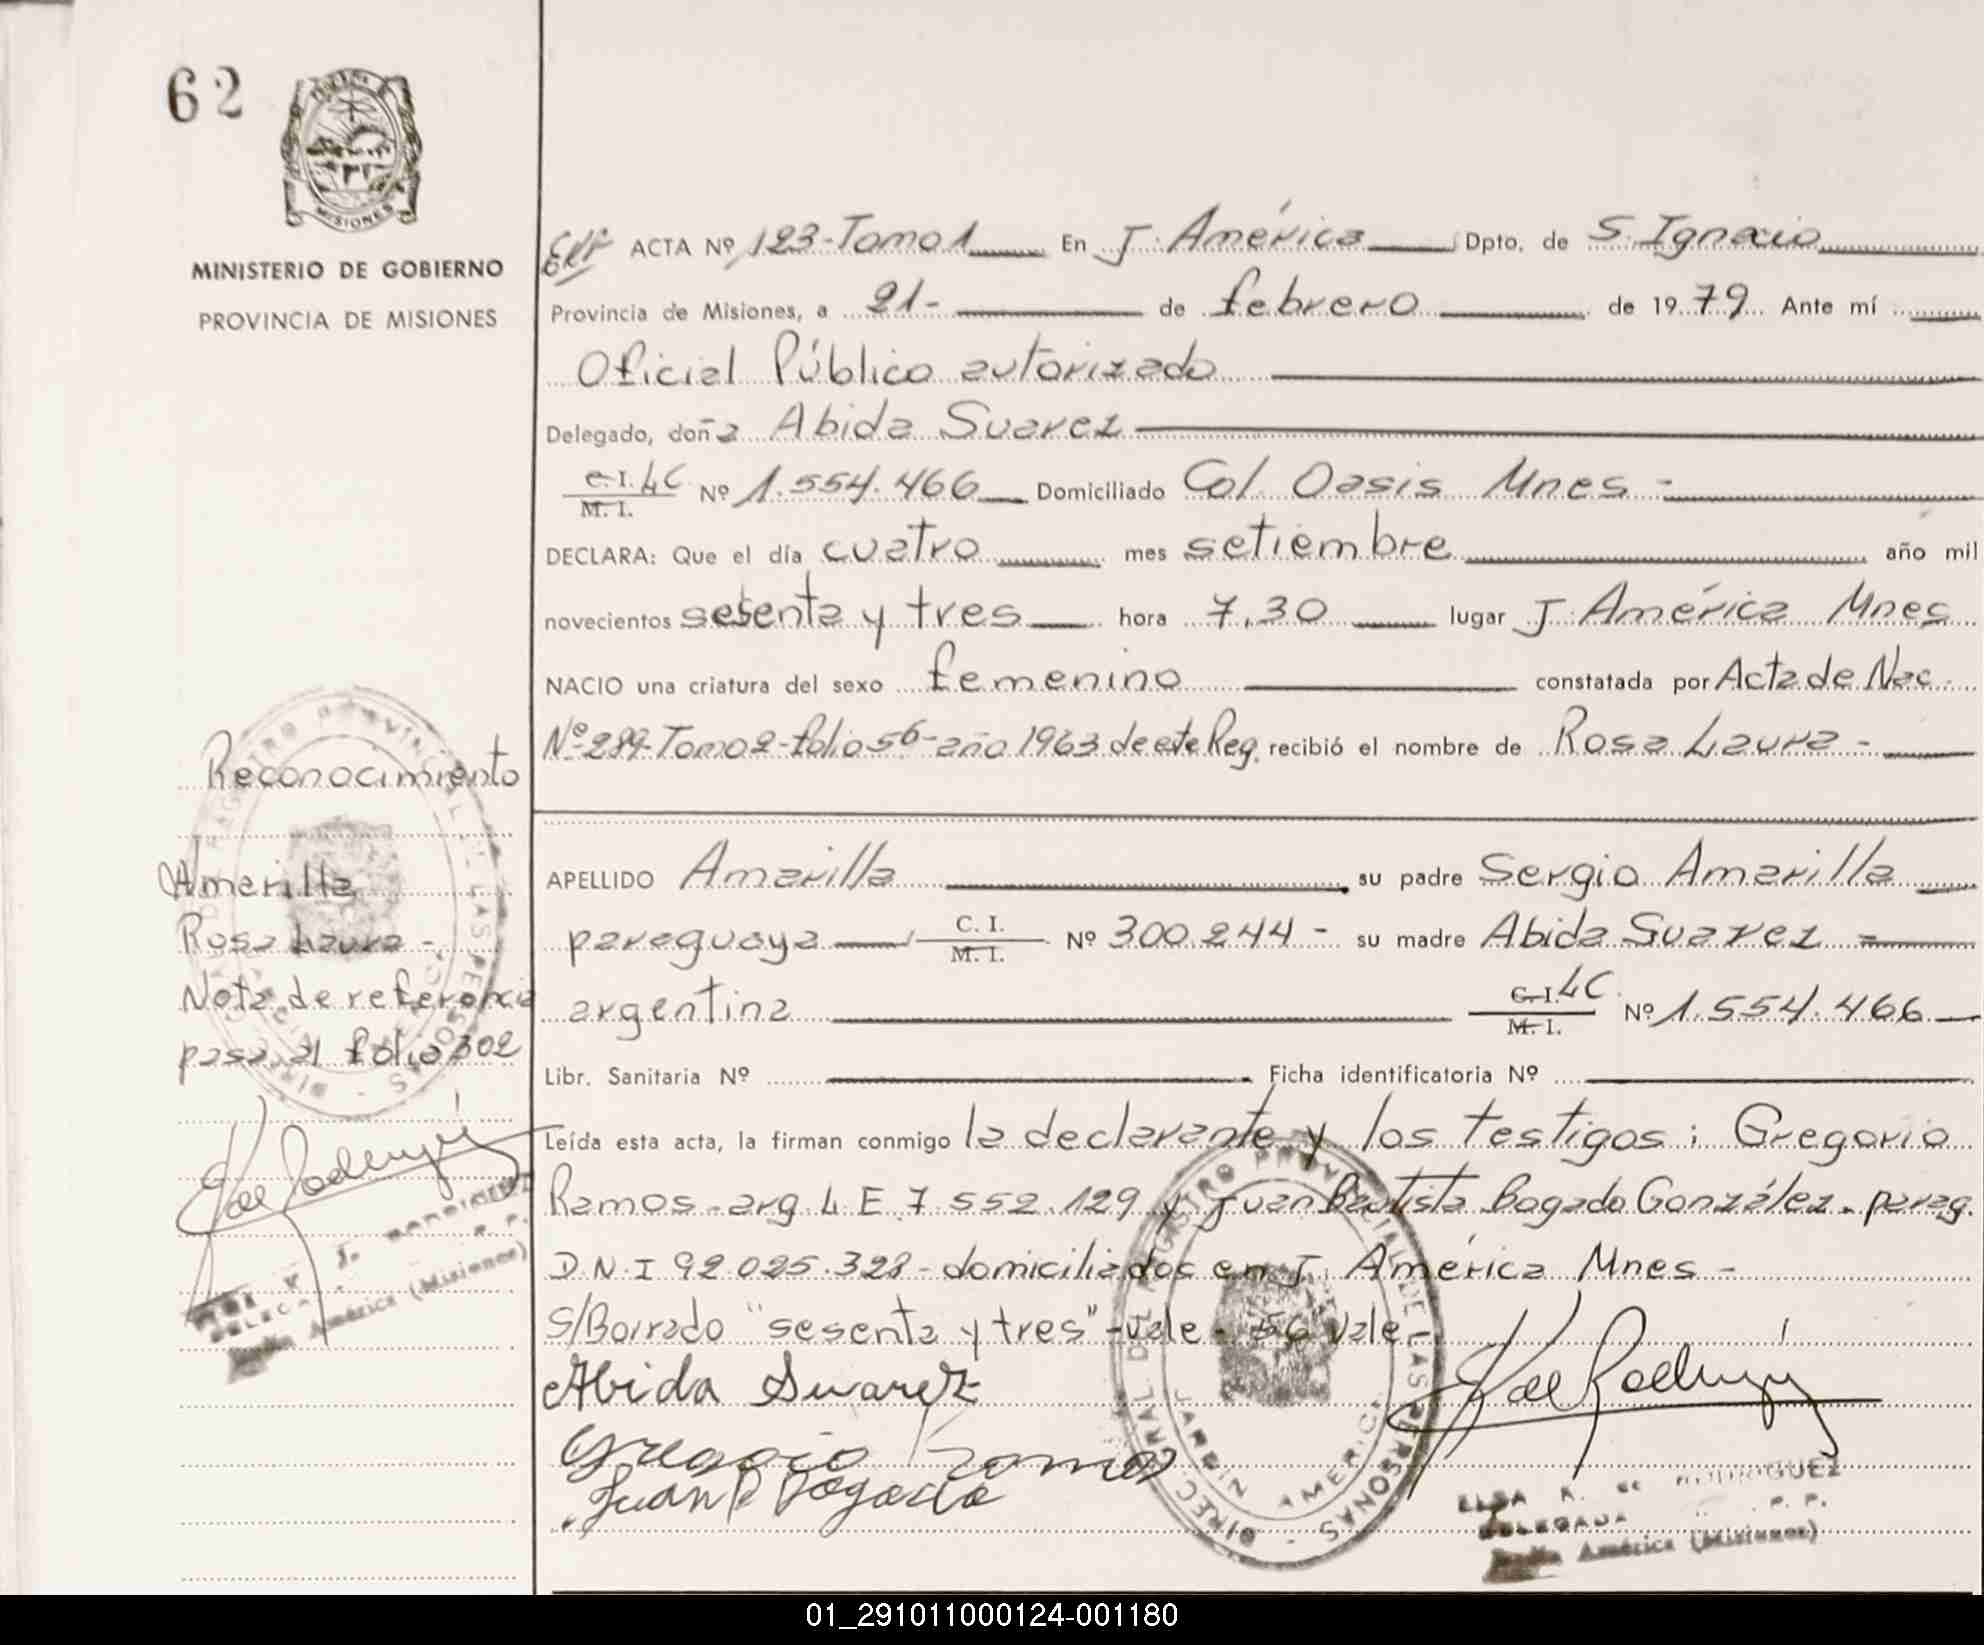 62
MISIONES
MINISTERIO DE GOBIERNO
PROVINCIA DE MISIONES
ACTA Nº 123-Tomo 1 En J. América Dpto. de S. Ignacio
Provincia de Misiones, a 21- de febrero de 1979. Ante mí
Oficial Público autorizado
Delegado, doña Abida Suarez
C.I. LC Nº 1.554.466 Domiciliado Col. Oasis Mnes -
M. I.
DECLARA: Que el día cuatro mes setiembre año mil
novecientos sesenta y tres hora 7,30 lugar J. América Mnes
NACIO una criatura del sexo femenino constatada por Acta de Nac.
Nº 289-Tomo 2-folio 56-año 1963 de este Reg. recibió el nombre de Rosa Laura -
APELLIDO Amarilla su padre Sergio Amarilla
paraguaya C. I. Nº 300.244 - su madre Abida Suarez -
M. I.
argentina C.I. LC Nº 1.554.466
M. I.
Libr. Sanitaria Nº Ficha identificatoria Nº
Leída esta acta, la firman conmigo la declarante y los testigos: Gregorio
Ramos-arg. L.E. 7.552.129 y Juan Bautista Bogado González-parag.
D.N.I 92.025.328-domiciliados en J. América Mnes -
S/Borrado "sesenta y tres"-vale- 56 vale-
Abida Suarez
Gregorio Ramos
Juan B Bogado
ELSA K. de RODRIGUEZ
DELEGADA R. P. P.
Jardín América (Misiones)
DIREC. GRAL. DEL REGISTRO PROVINCIAL DE LAS PERSONAS
JARDIN AMERICA
Reconocimiento
Amarilla
Rosa Laura -
Nota de referencia
pasa al folio 302
ELSA K. de RODRIGUEZ
DELEGADA R. P. P.
Jardín América (Misiones)
DIREC. GRAL. DEL REGISTRO PROVINCIAL DE LAS PERSONAS
01_291011000124-001180